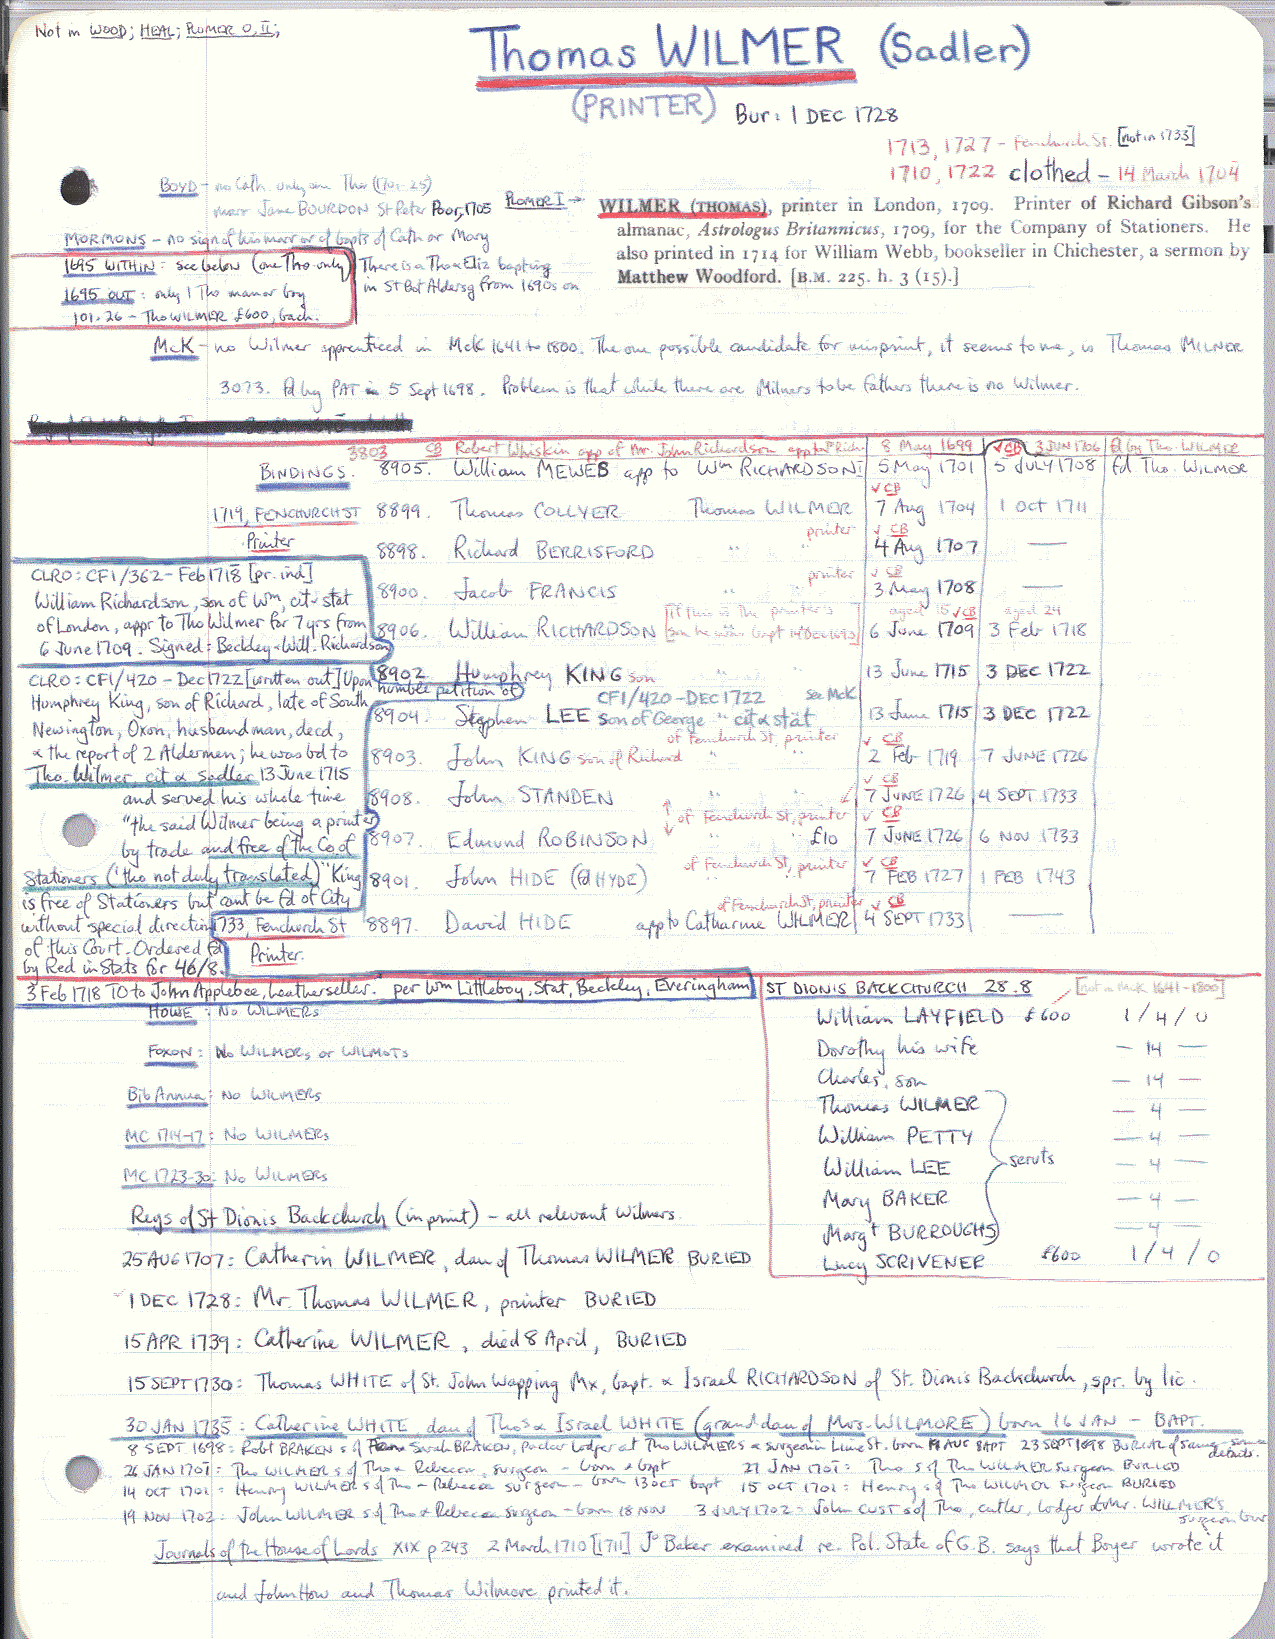 Not in WOOD; HEAL; PLOMER O, II;
Thomas WILMER (Sadler)
(PRINTER) Bur: 1 DEC 1728
1713, 1727 - Fenchurch St. [not in 1733]
1710, 1722 clothed - 14 March 1704
BOYD - no Cath. only one Tho (1701-25)
marr Jane BOURDON St Peter Poor, 1705
PLOMER I →
WILMER (THOMAS), printer in London, 1709. Printer of Richard Gibson's
almanac, Astrologus Britannicus, 1709, for the Company of Stationers. He
also printed in 1714 for William Webb, bookseller in Chichester, a sermon by
Matthew Woodford. [B.M. 225. h. 3 (15).]
MORMONS - no sign of his marr or of bapts of Cath or Mary
1695 WITHIN: see below (one Tho only)
There is a Tho & Eliz bapting
in St Bot Aldersg from 1690s on
1695 OUT: only 1 Tho manor boy
101.26 - Tho WILMER £600, bach.
McK - no Wilmer apprenticed in McK 1641 to 1800. The one possible candidate for misprint, it seems to me, is Thomas MILNER
3073. fd by PAT 5 Sept 1698. Problem is that while there are Milners to be fathers there is no Wilmer.
3803 CB Robert Whiskin app of Mr. John Richardson app to Rich. 8 May 1699 ✓CB 3 JUN 1706 fd by Tho. WILMER
BINDINGS. 8905. William MEWES app to Wm RICHARDSON I 5 May 1701 5 JULY 1708 fd Tho. WILMER
1719, FENCHURCH ST
Printer
8899. Thomas COLLYER Thomas WILMER ✓CB 7 Aug 1704 1 OCT 1711
8898. Richard BERRISFORD " " printer ✓CB 4 Aug 1707 —
8900. Jacob FRANCIS " printer ✓CB 3 May 1708 —
8906. William RICHARDSON [if this is the printer's son he was bapt 14 DEC 1693] aged 15 ✓CB 6 June 1709 aged 24 3 Feb 1718
8902 Humphrey KING son 13 June 1715 3 DEC 1722
CF1/420-DEC 1722 see McK
8904. Stephen LEE son of George " cit & stat 13 June 1715 3 DEC 1722
8903. John KING son of Richard " of Fenchurch St, printer ✓CB 2 Feb 1719 7 JUNE 1726
8908. John STANDEN " " ✓CB 7 JUNE 1726 4 SEPT 1733
8907. Edmund ROBINSON of Fenchurch St, printer £10 ✓CB 7 JUNE 1726 6 NOV 1733
8901. John HIDE (fd HYDE) of Fenchurch St, printer ✓CB 7 FEB 1727 1 FEB 1743
8897. David HIDE app to Catharine WILMER of Fenchurch St, printer ✓CB 4 SEPT 1733 —
CLRO: CF1/362 - Feb 1718 [pr. ind]
William Richardson, son of Wm, cit & stat
of London, appr to Tho Wilmer for 7 yrs from
6 June 1709. Signed: Beckley & Will. Richardson
CLRO: CF1/420 - Dec 1722 [written out] Upon
humble petition of
Humphrey King, son of Richard, late of South
Newington, Oxon, husbandman, decd,
& the report of 2 Aldermen; he was bd to
Tho. Wilmer cit & sadler 13 June 1715
and served his whole time
"the said Wilmer being a printer
by trade and free of the Co of
Stationers (tho not duly translated)" King
is free of Stationers but cant be fd of City
without special direction
of this Court. Ordered fd
by Red in Stats for 46/8.
1733, Fenchurch St
Printer.
3 Feb 1718 TO to John Applebee, Leatherseller. per Wm Littleboy, Stat, Beckley, Everingham
HOWE: NO WILMERS
FOXON: NO WILMERS or WILMOTS
Bib Annua: NO WILMERS
MC 1714-17: NO WILMERS
MC 1723-30: NO WILMERS
ST DIONIS BACKCHURCH 28.8 [not in McK 1641-1800]
William LAYFIELD £600 1/4/0
Dorothy his wife — 14 —
Charles, son — 14 —
Thomas WILMER — 4 —
William PETTY — 4 —
William LEE servts — 4 —
Mary BAKER — 4 —
Margt BURROUGHS — 4 —
Lucy SCRIVENER £600 1/4/0
Regs of St Dionis Backchurch (in print) - all relevant Wilmers
25 AUG 1707: Catherin WILMER, dau of Thomas WILMER BURIED
1 DEC 1728: Mr. Thomas WILMER, printer BURIED
15 APR 1739: Catherine WILMER, died 8 April, BURIED
15 SEPT 1730: Thomas WHITE of St. John Wapping Mx, bapt. & Israel RICHARDSON of St. Dionis Backchurch, spr. by lic.
30 JAN 1735: Catherine WHITE dau of Thos & Israel WHITE (grand dau of Mrs. WILMORE) born 16 JAN - BAPT.
8 SEPT 1698: Robt BRAKEN s of Sarah BRAKEN, lodger at Tho WILMERS a surgeon in Lime St. born AUG BAPT 23 SEPT 1698 BURIAL of same - some details.
26 JAN 1701: Tho WILMER s of Tho & Rebecca, surgeon - born & bapt 27 JAN 1701: Tho s of Tho WILMER surgeon BURIED
14 OCT 1701: Henry WILMER s of Tho - Rebecca surgeon - born 13 OCT bapt 15 OCT 1701: Henry s of Tho WILMER surgeon BURIED
19 NOV 1702: John WILMER s of Tho & Rebecca surgeon - born 18 NOV 3 JULY 1702: John CUST s of Tho, cutler, lodger at Mr. WILLMER'S surgeon bur
Journals of the House of Lords XIX p 243 2 March 1710 [1711] Jo Baker examined re. Pol. State of G.B. says that Boyer wrote it
and John How and Thomas Wilmore printed it.